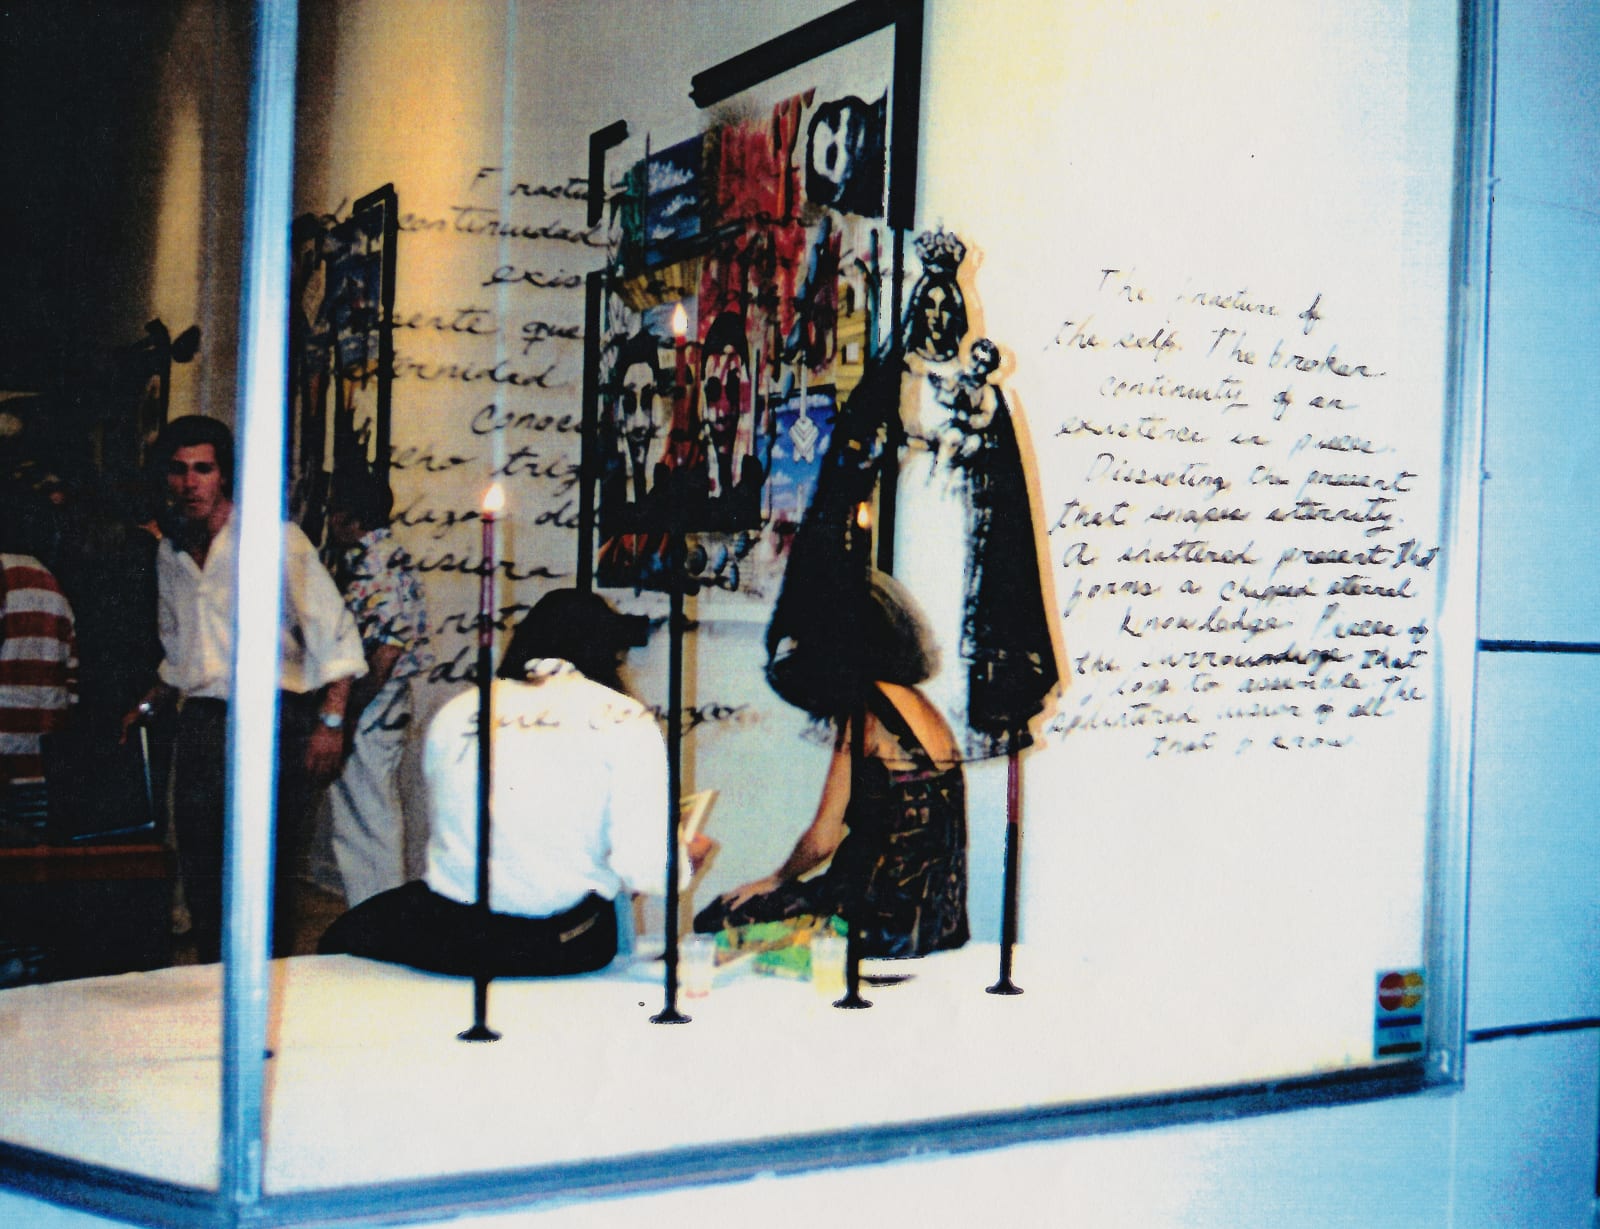 Fractu
de continuidad
exis
presente que
eternidad
Conoci
pero triz
dazos de
Quisiera
de
lo que conozco
The fracture of
the self. The broken
continuity of an
existence in pieces.
Dissecting the present
that shapes eternity.
A shattered present that
forms a chipped eternal
knowledge. Pieces of
the surroundings that
I love to assemble. The
splintered vision of all
that I know